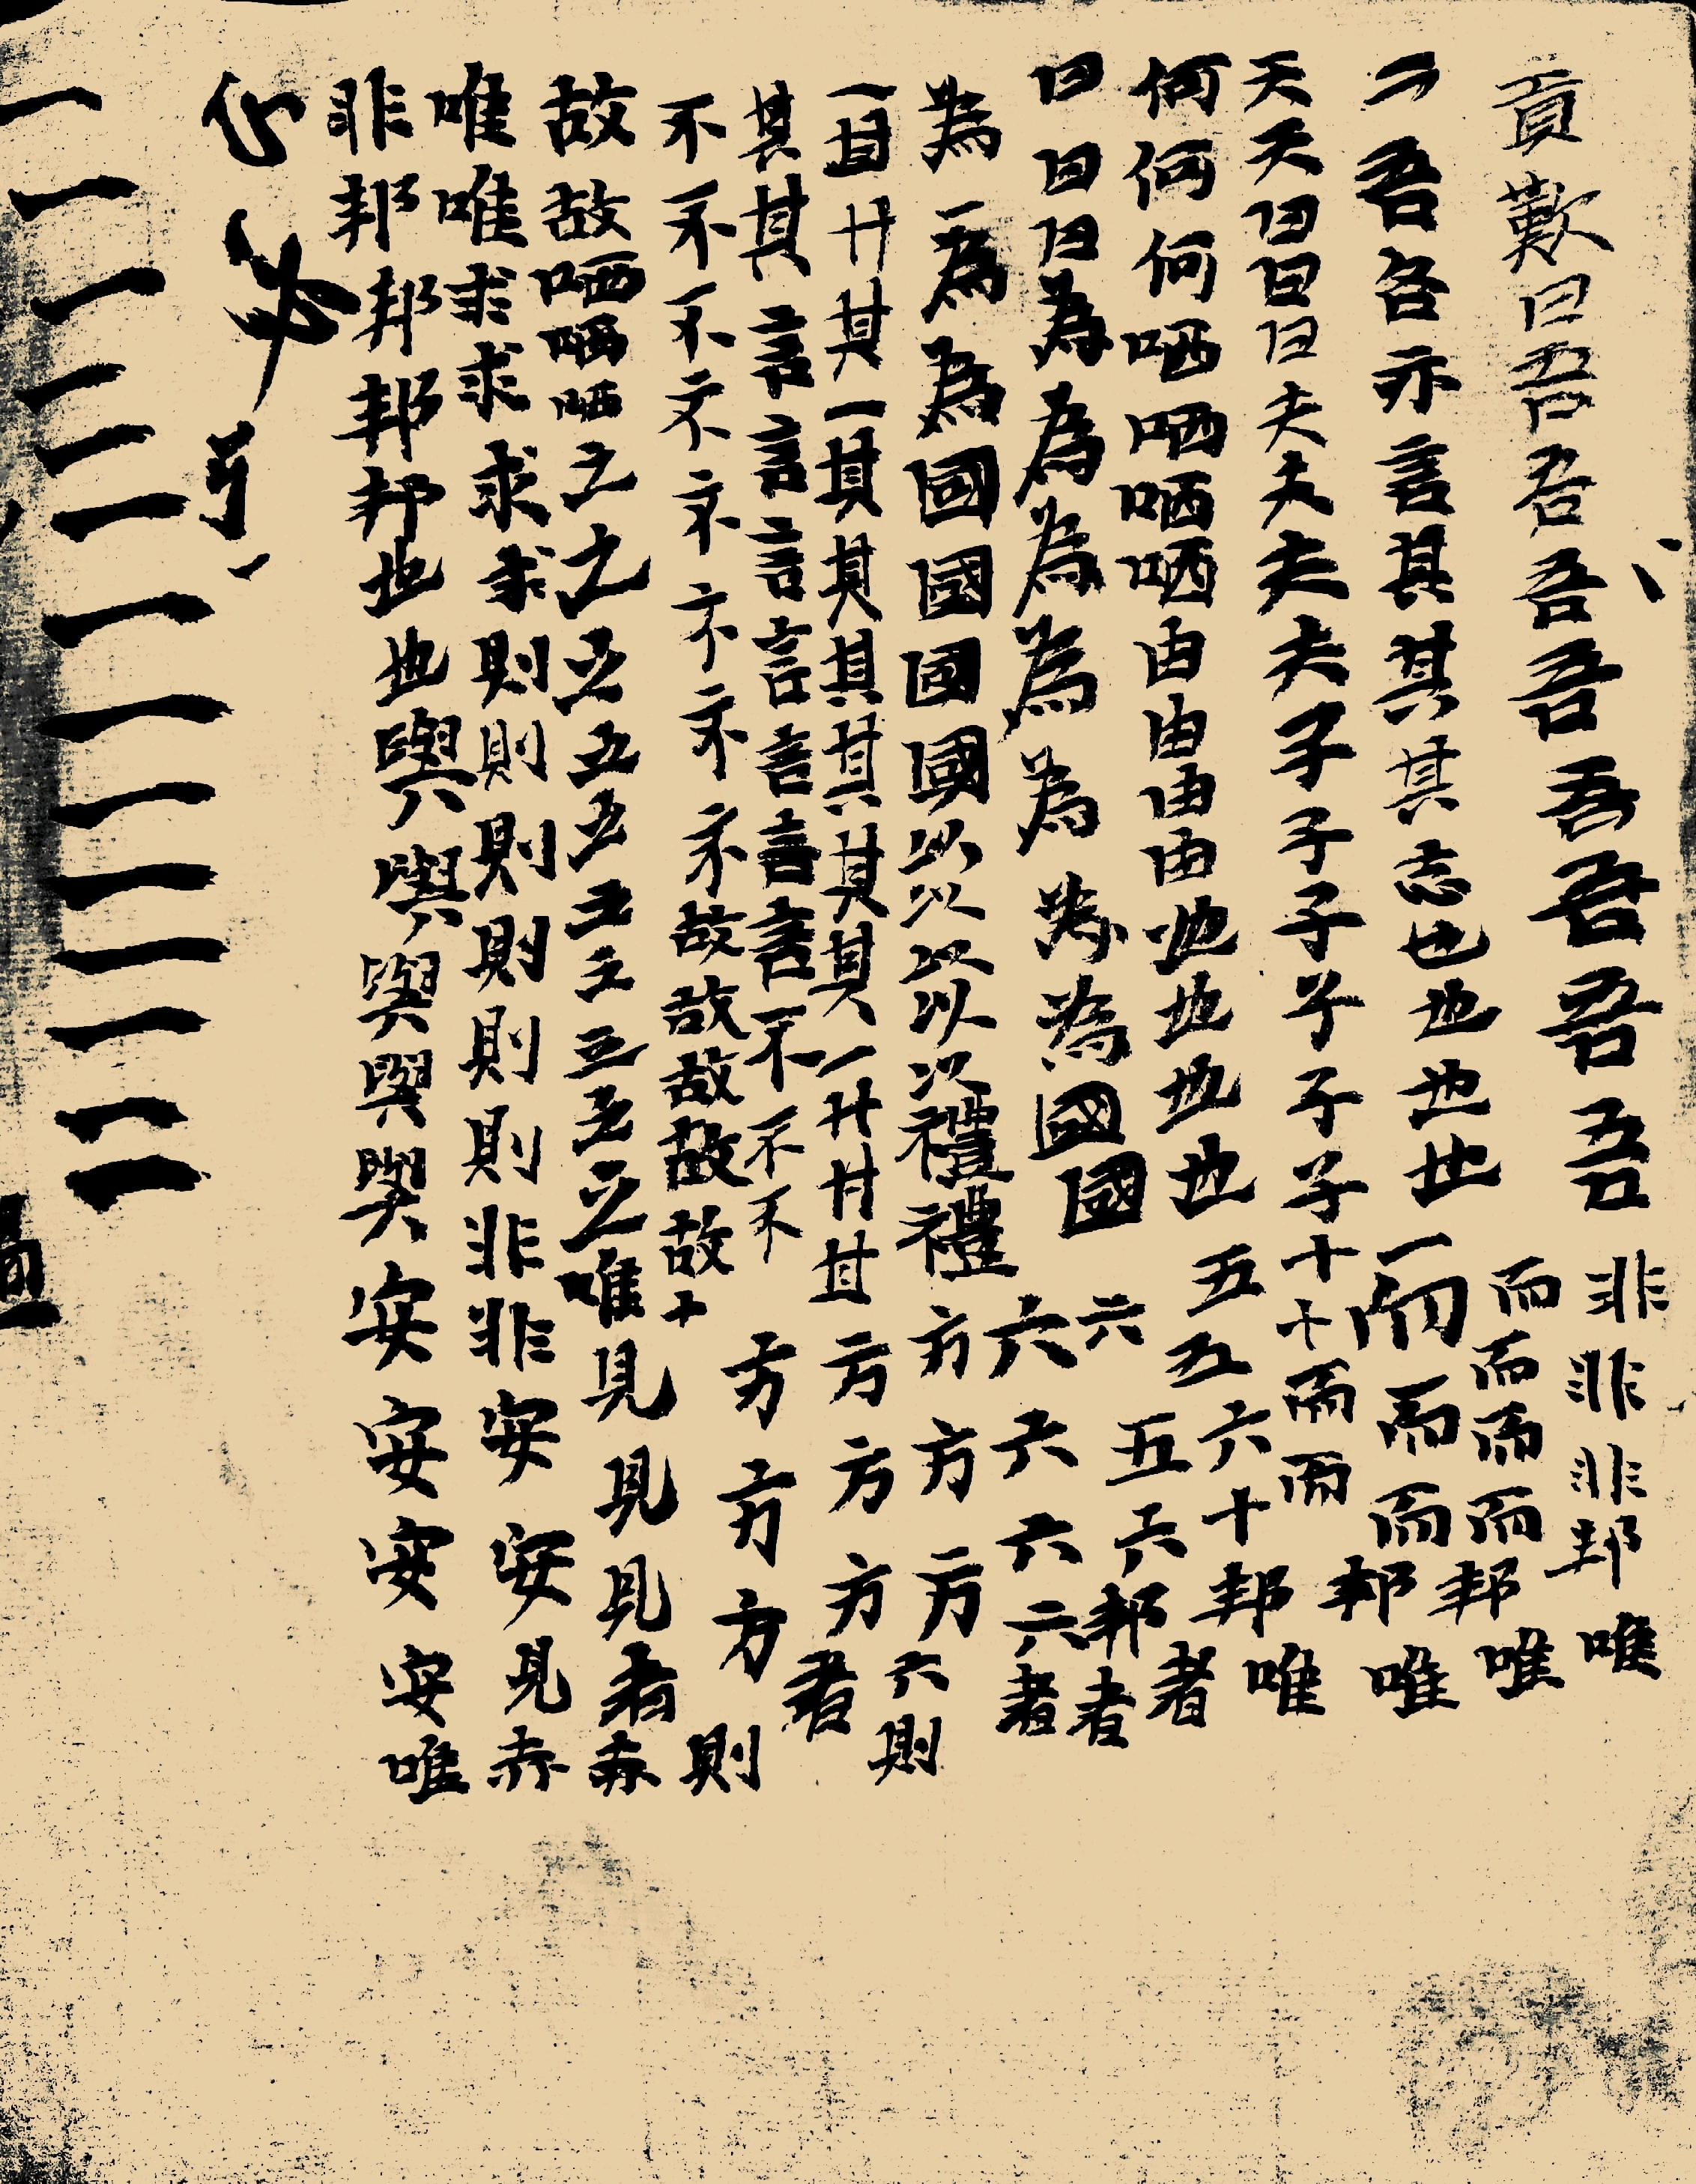 貢歎曰吾吾吾吾吾吾吾吾非非非邦唯
二吾各亦言其其其志也也也也一而而而邦唯
而而而而邦唯
天天曰曰曰夫夫夫夫子子子子子子十十而而
何何何哂哂哂哂由由由由也也也也五五六十邦唯
曰曰曰為為為為為為為國國六五六邦者
為一為為國國國國以以以以以禮禮六六六六者者
方方方六則
一甘廿其一其其其其其其一廿甘甘方方方者
其其言言言言言言言不不不方方方則
不不不不不不不不故故故故故十
故故哂哂哂之之之五五五立立五之唯見見見者亦
唯唯求求求求則則則則則則非非安安見亦
非邦邦邦邦也也與與與與與安安安安唯
心必
一一一一一一一一一一一一一一